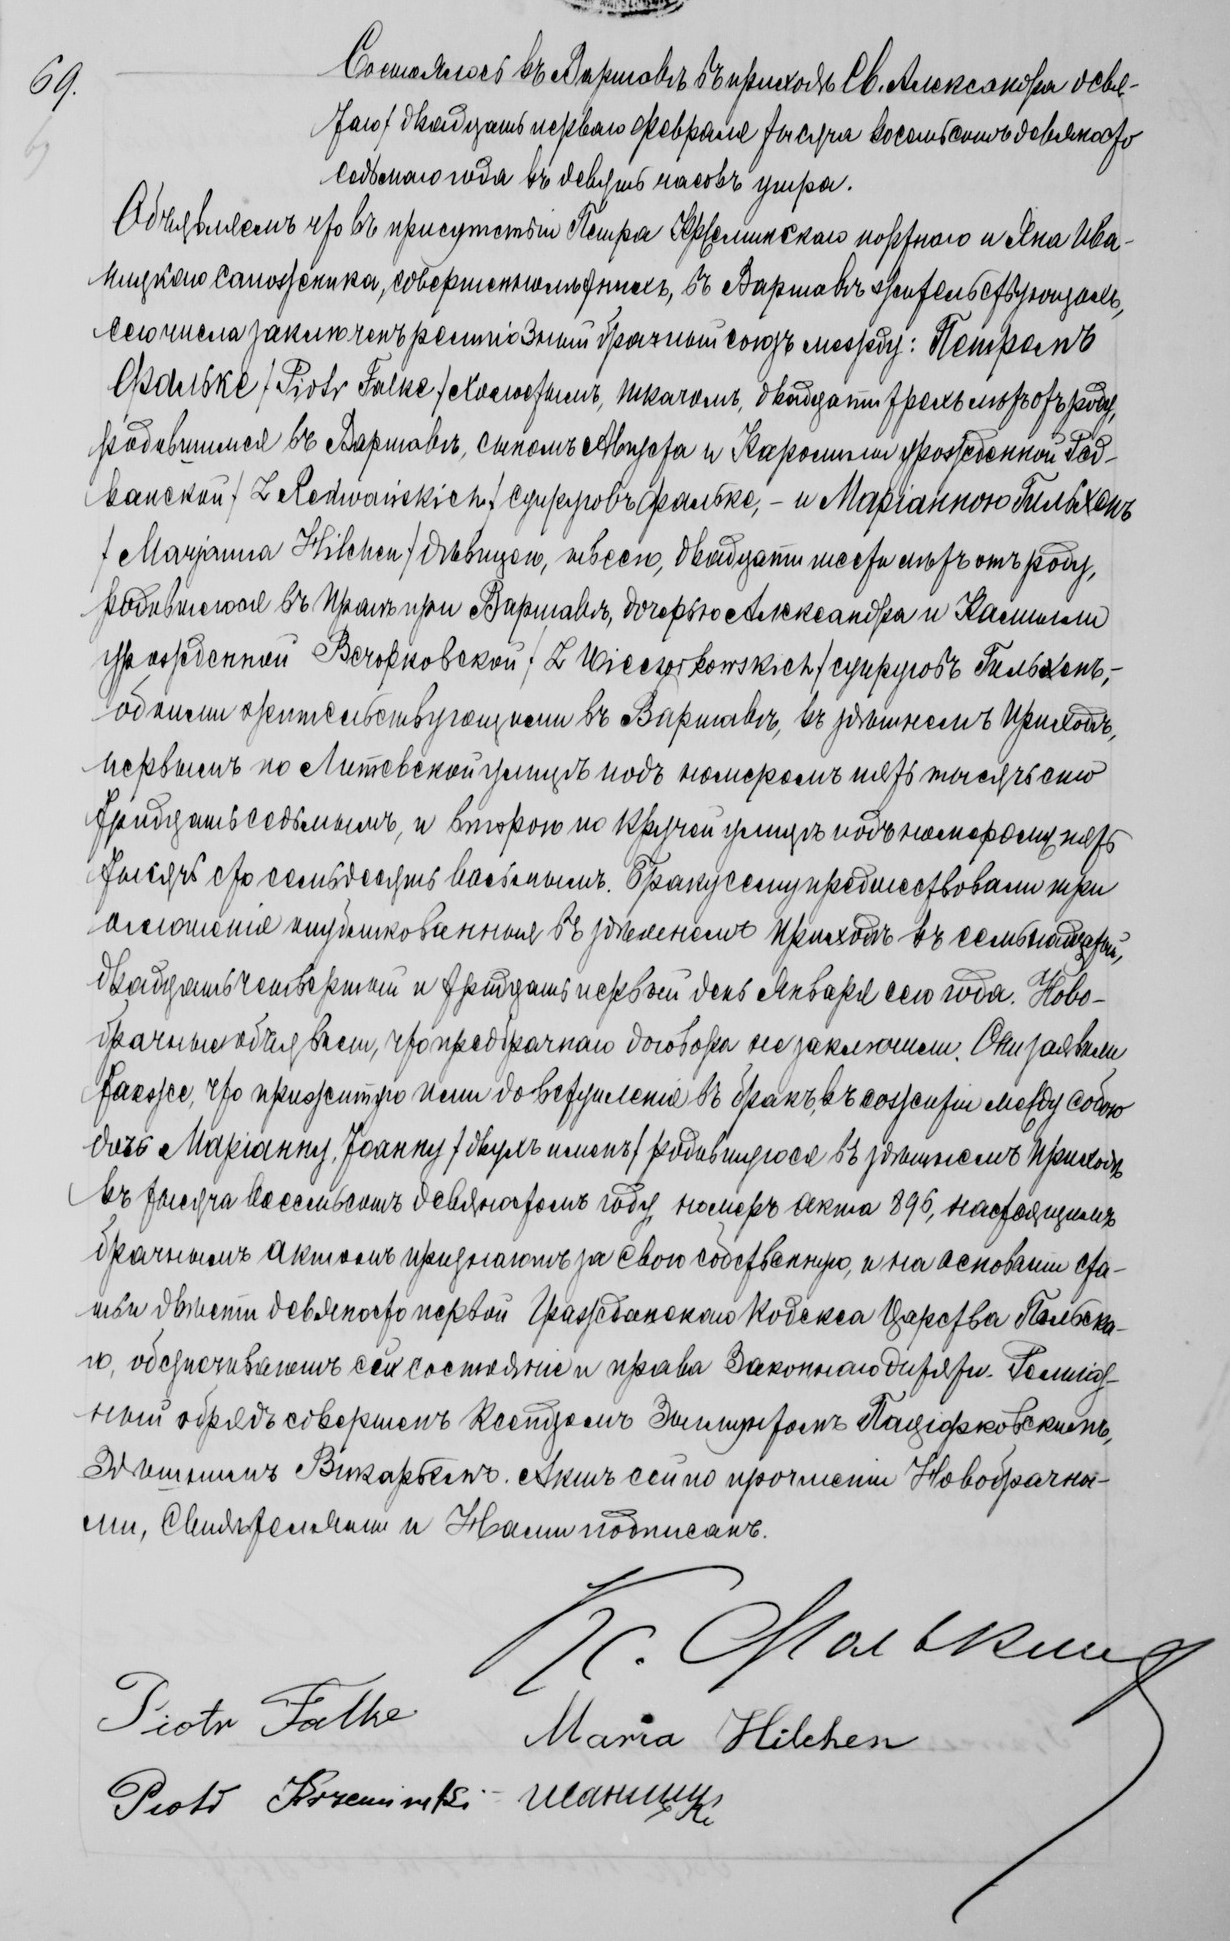 69.
Состоялось въ Варшавѣ въ приходѣ Св. Александра девя-
таго / двадцать перваго Февраля тысяча восемьсотъ девяносто
седьмаго года въ девять часовъ утра.
Объявляемъ что въ присутствіи Петра Кржеминскаго портнаго и Яна Ива-
ницкаго сапожника, совершеннолѣтнихъ, въ Варшавѣ жительствующихъ,
сего числа заключенъ религіозный брачный союзъ между: Петромъ
Фальке / Piotr Falke / холостымъ, ткачомъ, двадцати трехъ лѣтъ отъ роду,
родившимся въ Варшавѣ, сыномъ Августа и Каролины урожденной Ред-
ванской / Z Redwańskich / супруговъ Фальке, – и Маріанною Гильхенъ
/ Marjanna Hilchen / дѣвицею, швеею, двадцати шести лѣтъ отъ роду,
родившеюся въ Прагѣ при Варшавѣ, дочерью Александра и Камиллы
урожденной Вечорковской / Z Wieczorkowskich / супруговъ Гильхенъ, –
обоими жительствующими въ Варшавѣ, въ здѣшнемъ приходѣ,
первымъ по Литевской улицѣ подъ номеромъ пять тысячъ сто
тридцать седьмымъ, и второю по Кручей улицѣ подъ номеромъ пять
тысячъ сто семьдесятъ восьмымъ. Браку сему предшествовали три
оглашенія опубликованныя въ здѣшнемъ приходѣ въ семьнадцатый,
двадцать четвертый и тридцать первый день Января сего года. Ново-
брачные объявили, что предбрачнаго договора не заключили. Они заявили
также, что прижитую ими до вступленія въ бракъ, въ сожитіи между собою
дочь Маріанну, Іоанну / двухъ именъ / родившуюся въ здѣшнемъ приходѣ
въ тысяча восемьсотъ девяностомъ году, номеръ акта 896, настоящимъ
брачнымъ актомъ признаютъ за свою собственную, и на основаніи ста-
тьи двѣсти девяносто первой Гражданскаго Кодекса Царства Польска-
го, обезпечиваютъ ей состояніе и права Законнаго дитяти. Религіоз-
ный обрядъ совершенъ Ксендзомъ Зыгмунтомъ
Здѣшнимъ Викарьемъ. Актъ сей по прочтеніи Новобрачны-
ми, Свидѣтелями и Нами подписанъ.
К.
Piotr Falke Maria Hilchen
Piotr Krzemiński